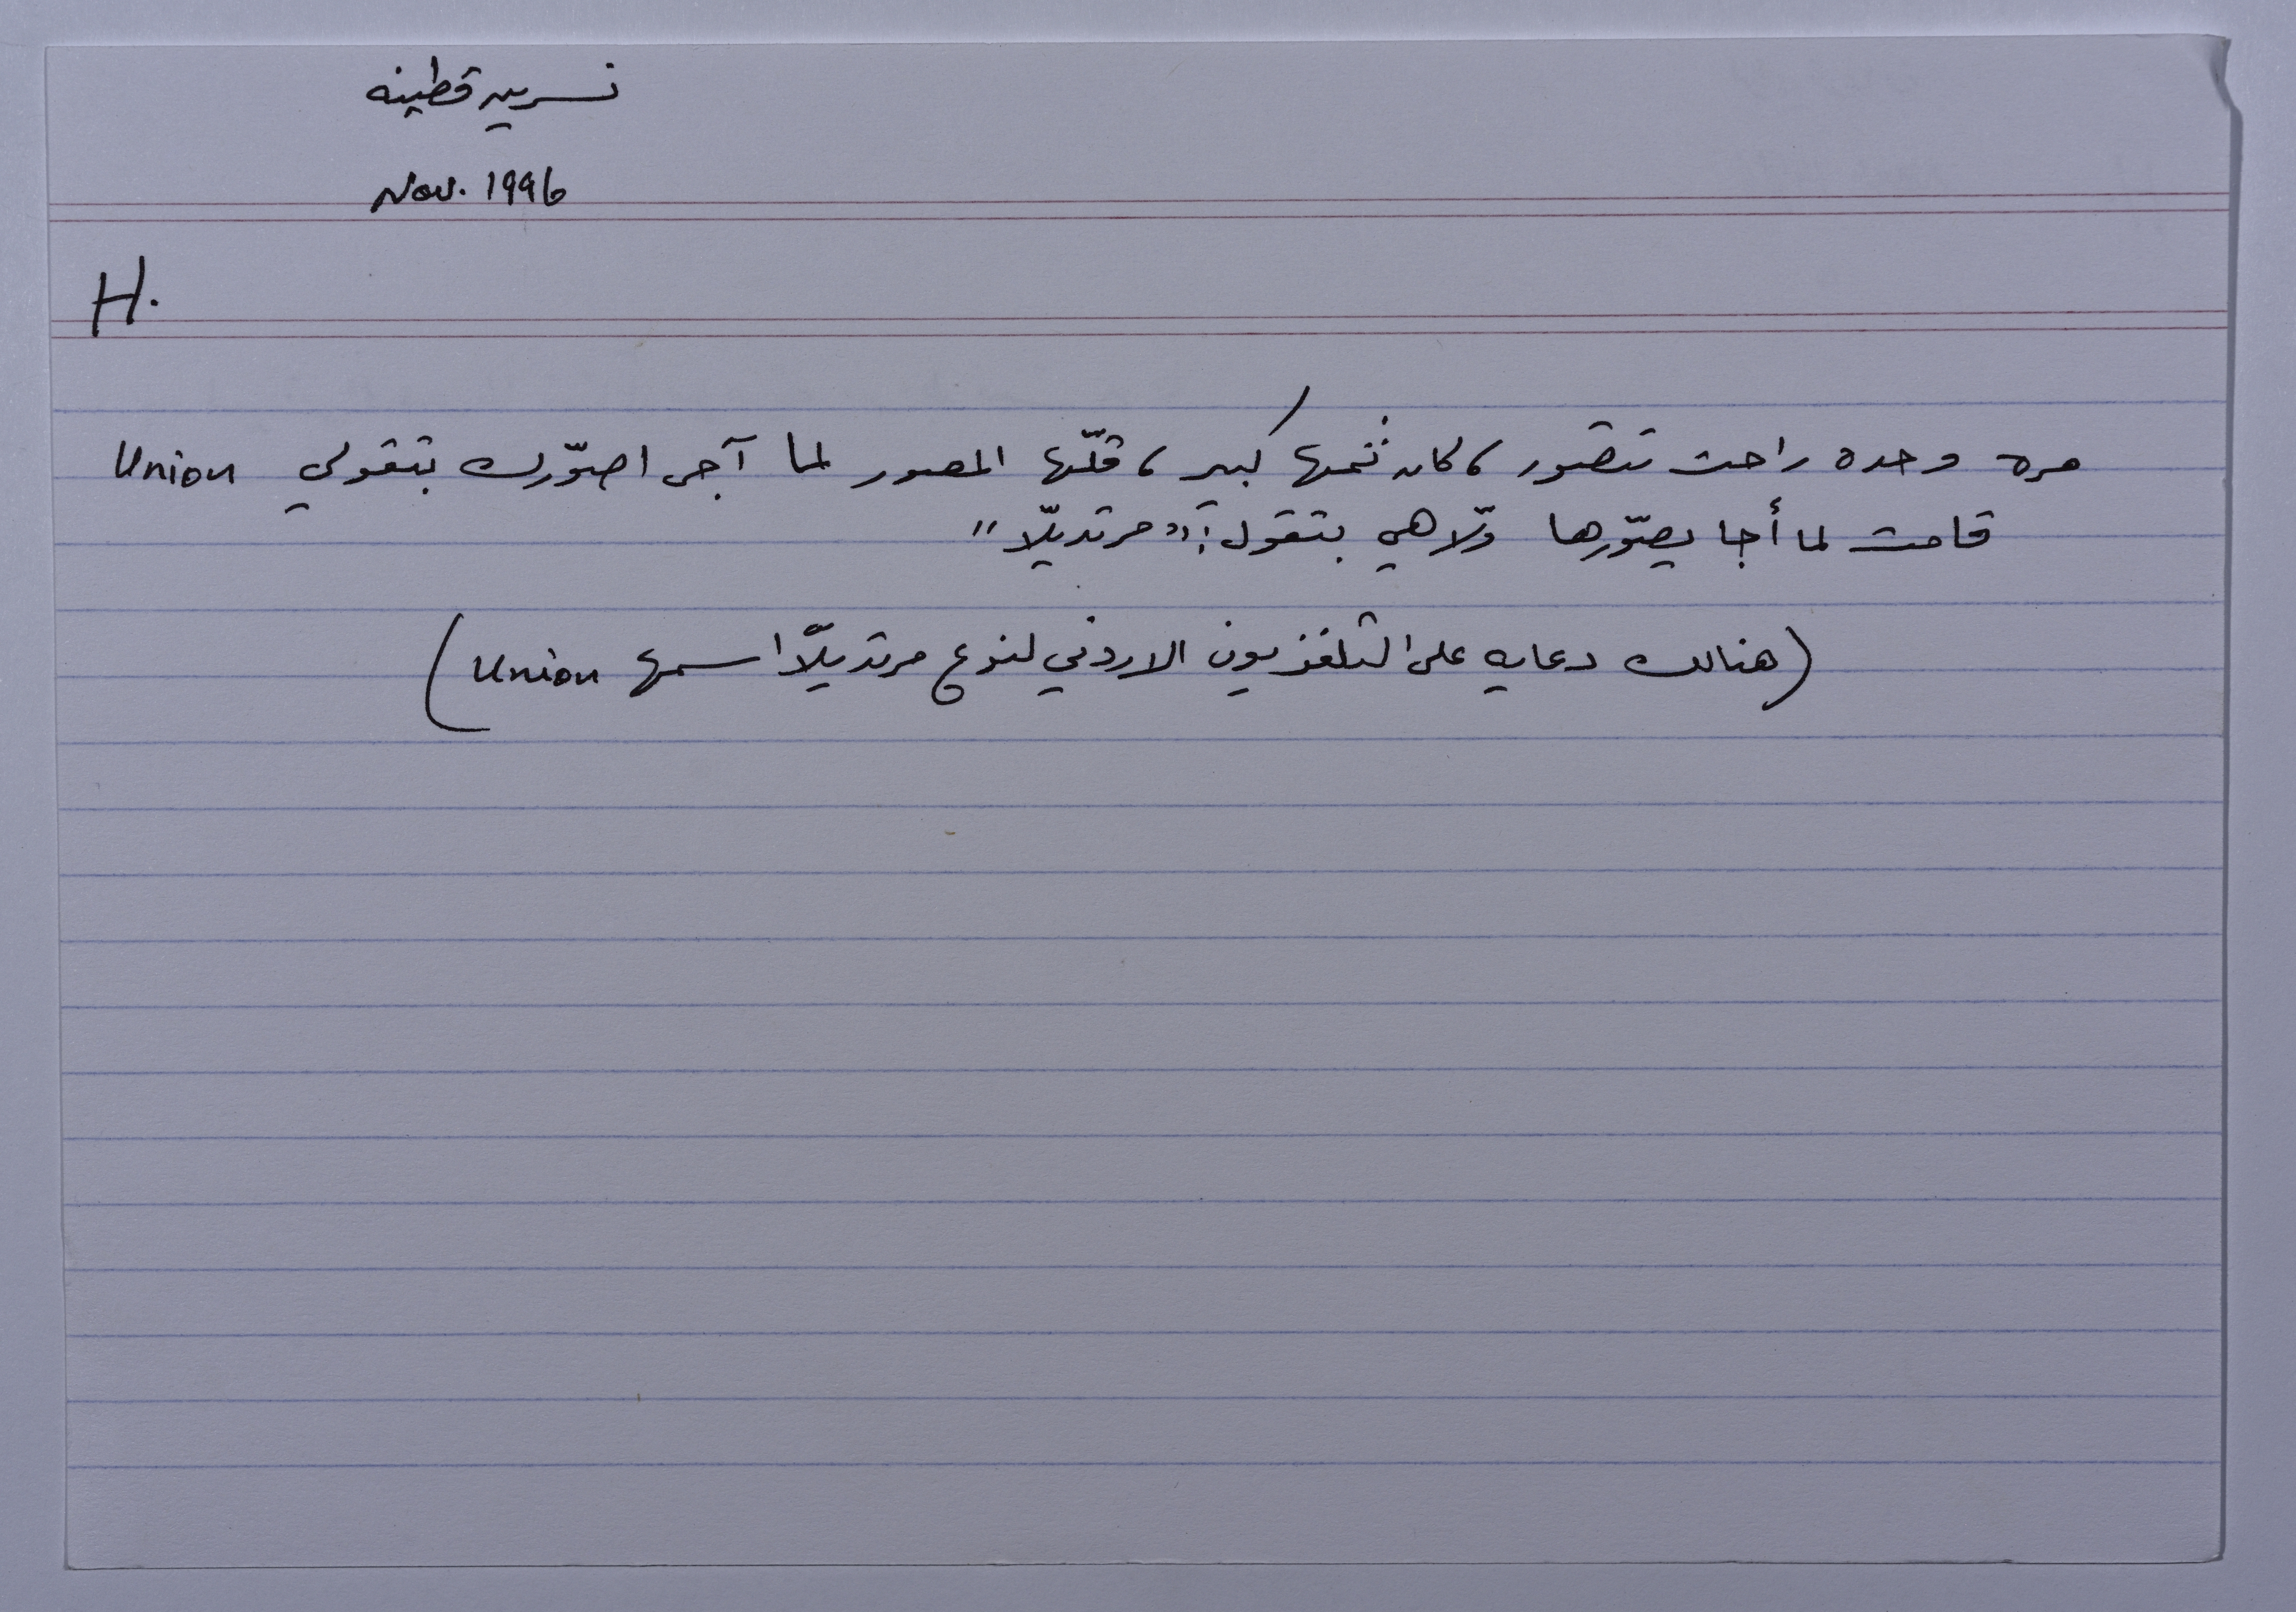 نسرين قطينه
Nov. 1996
H.
مره وحده راحت تتصور، كان ثمها كبير، قلّها المصور لما آجى اصوّرك بتقولي Union
قامت لما أجا يصوّرها ولّا هي بتقول: "مرتديلّا"
(هنالك دعايه على التلفزيون الاردني لنوع مرتديلّا اسمها Union)